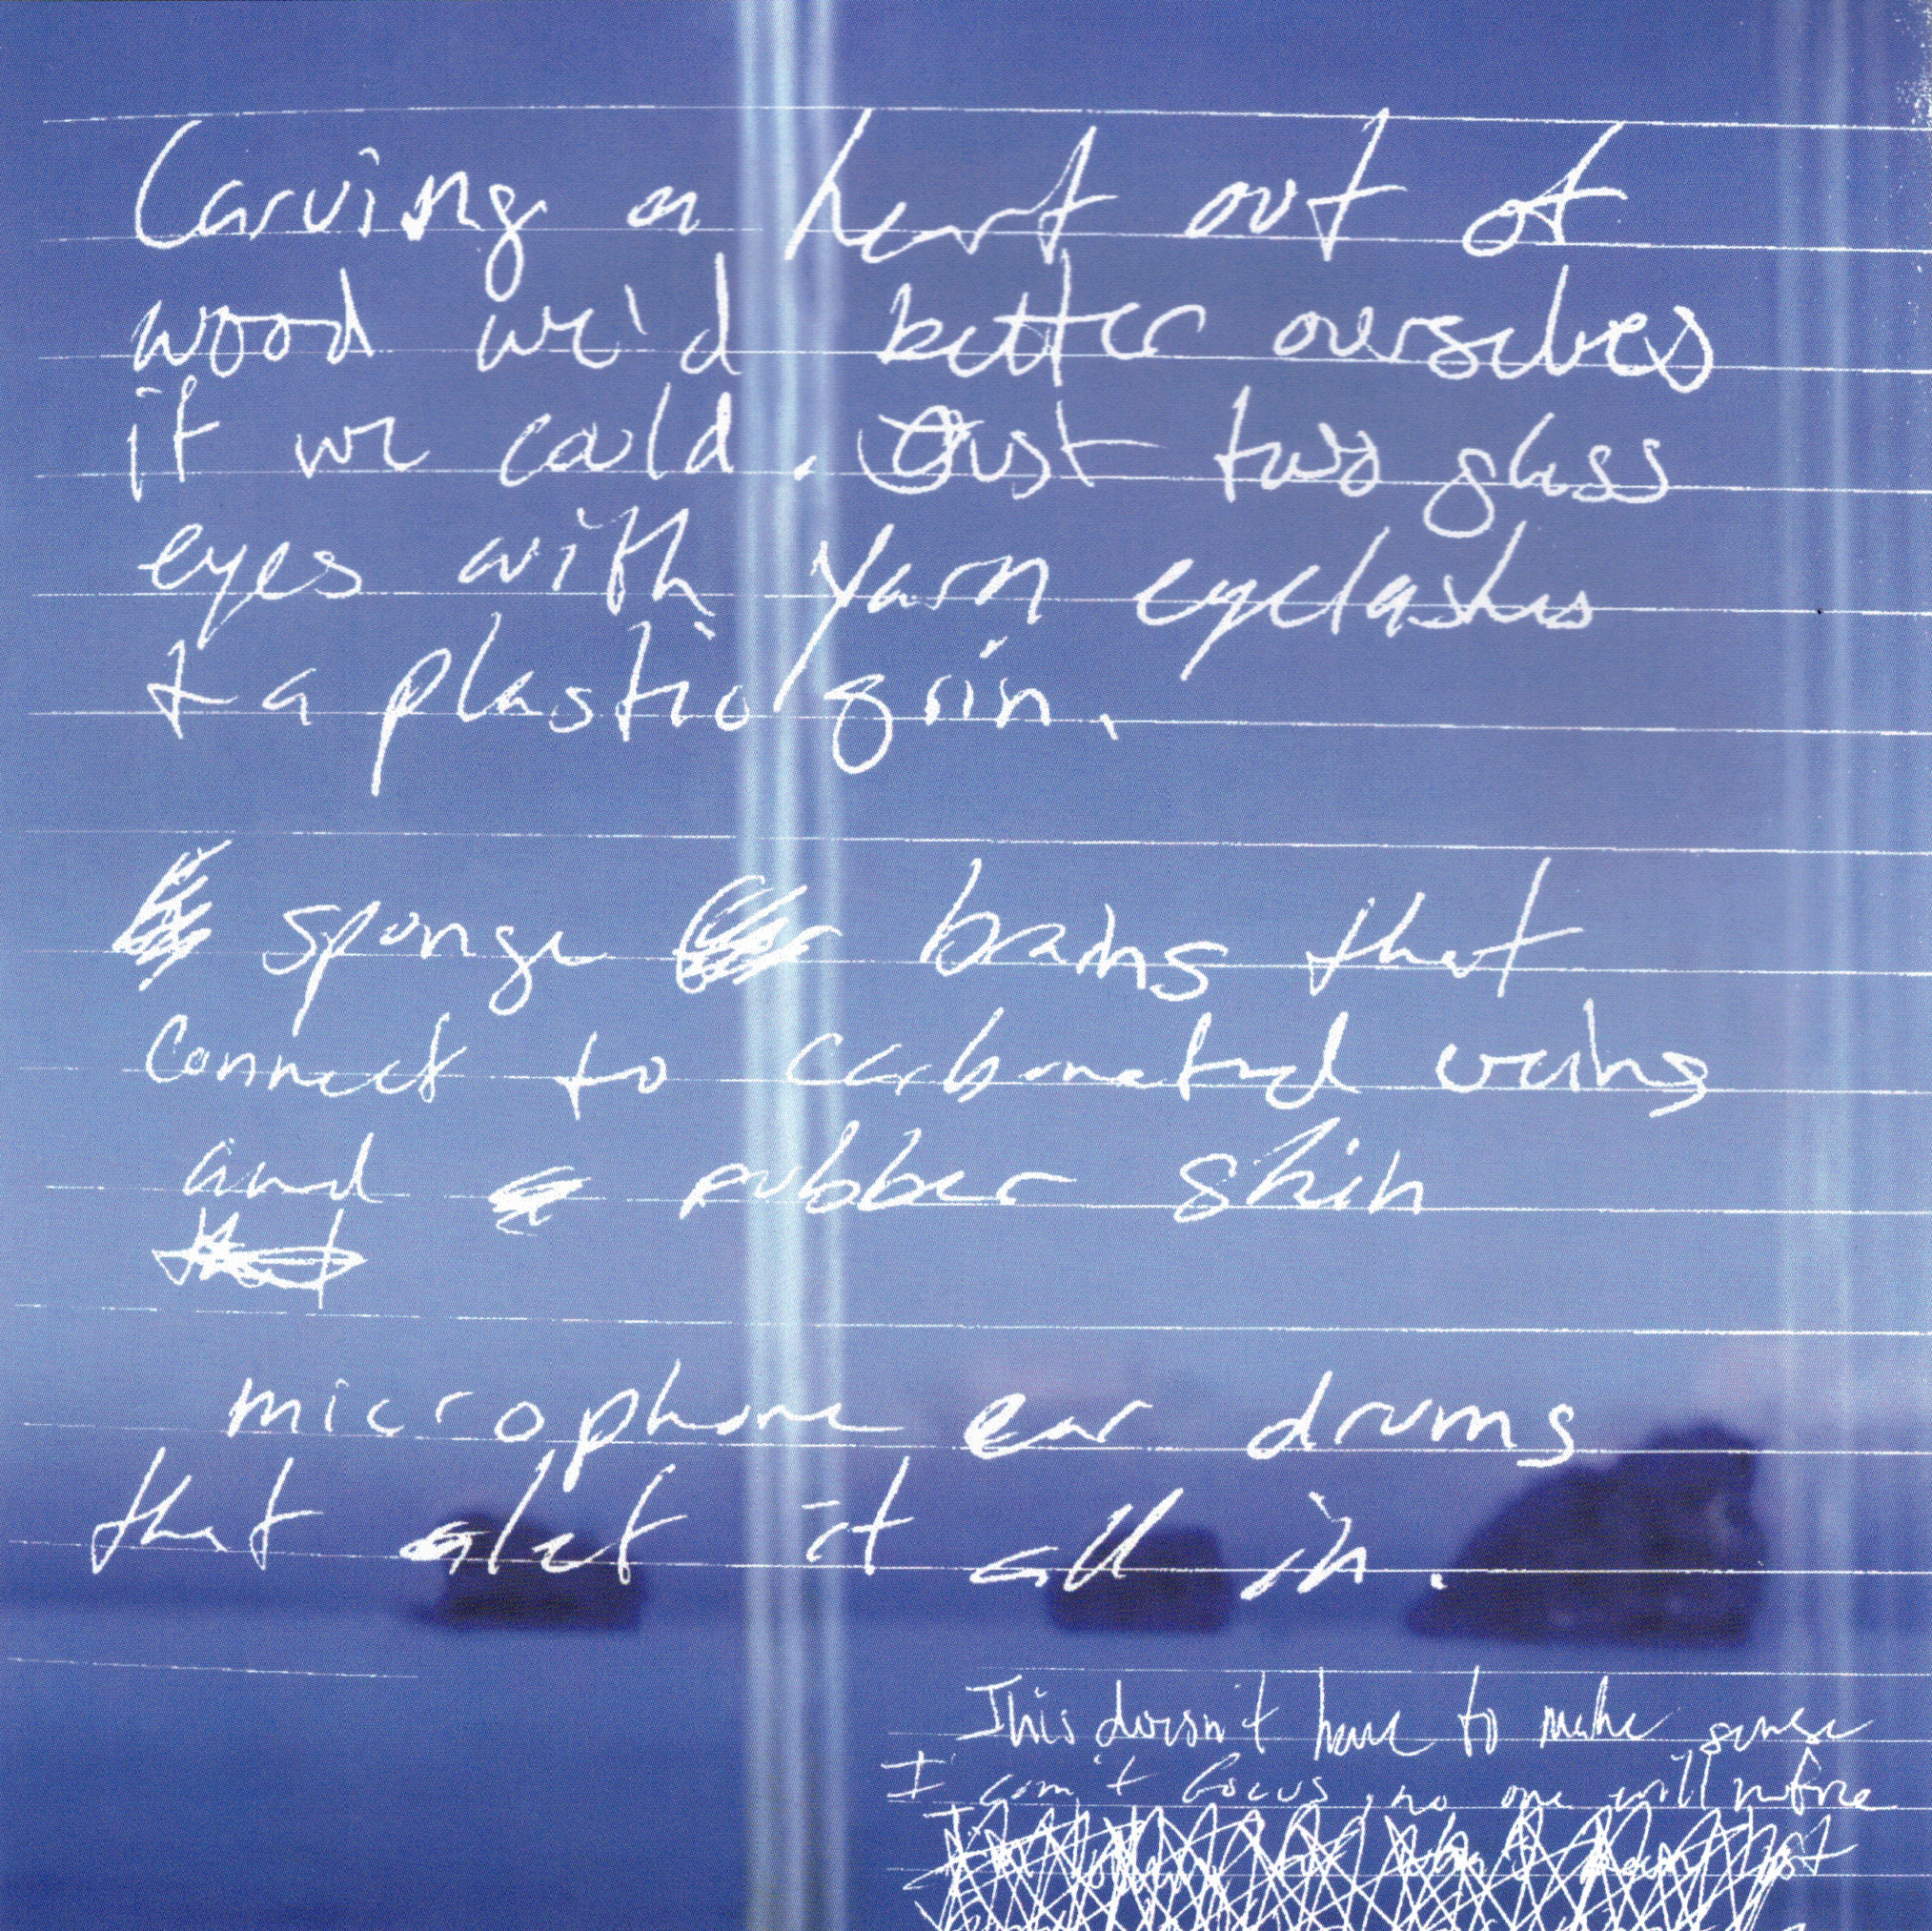 Carving a heart out of
wood we'd better ourselves
if we could. Just two glass
eyes with yarn eyelashes
& a plastic grin.
sponge brains that
connect to carbonated veins
and rubber skin
microphone ear drums
that let it all in.
This doesn't have to make sense
I can't focus, no one will notice